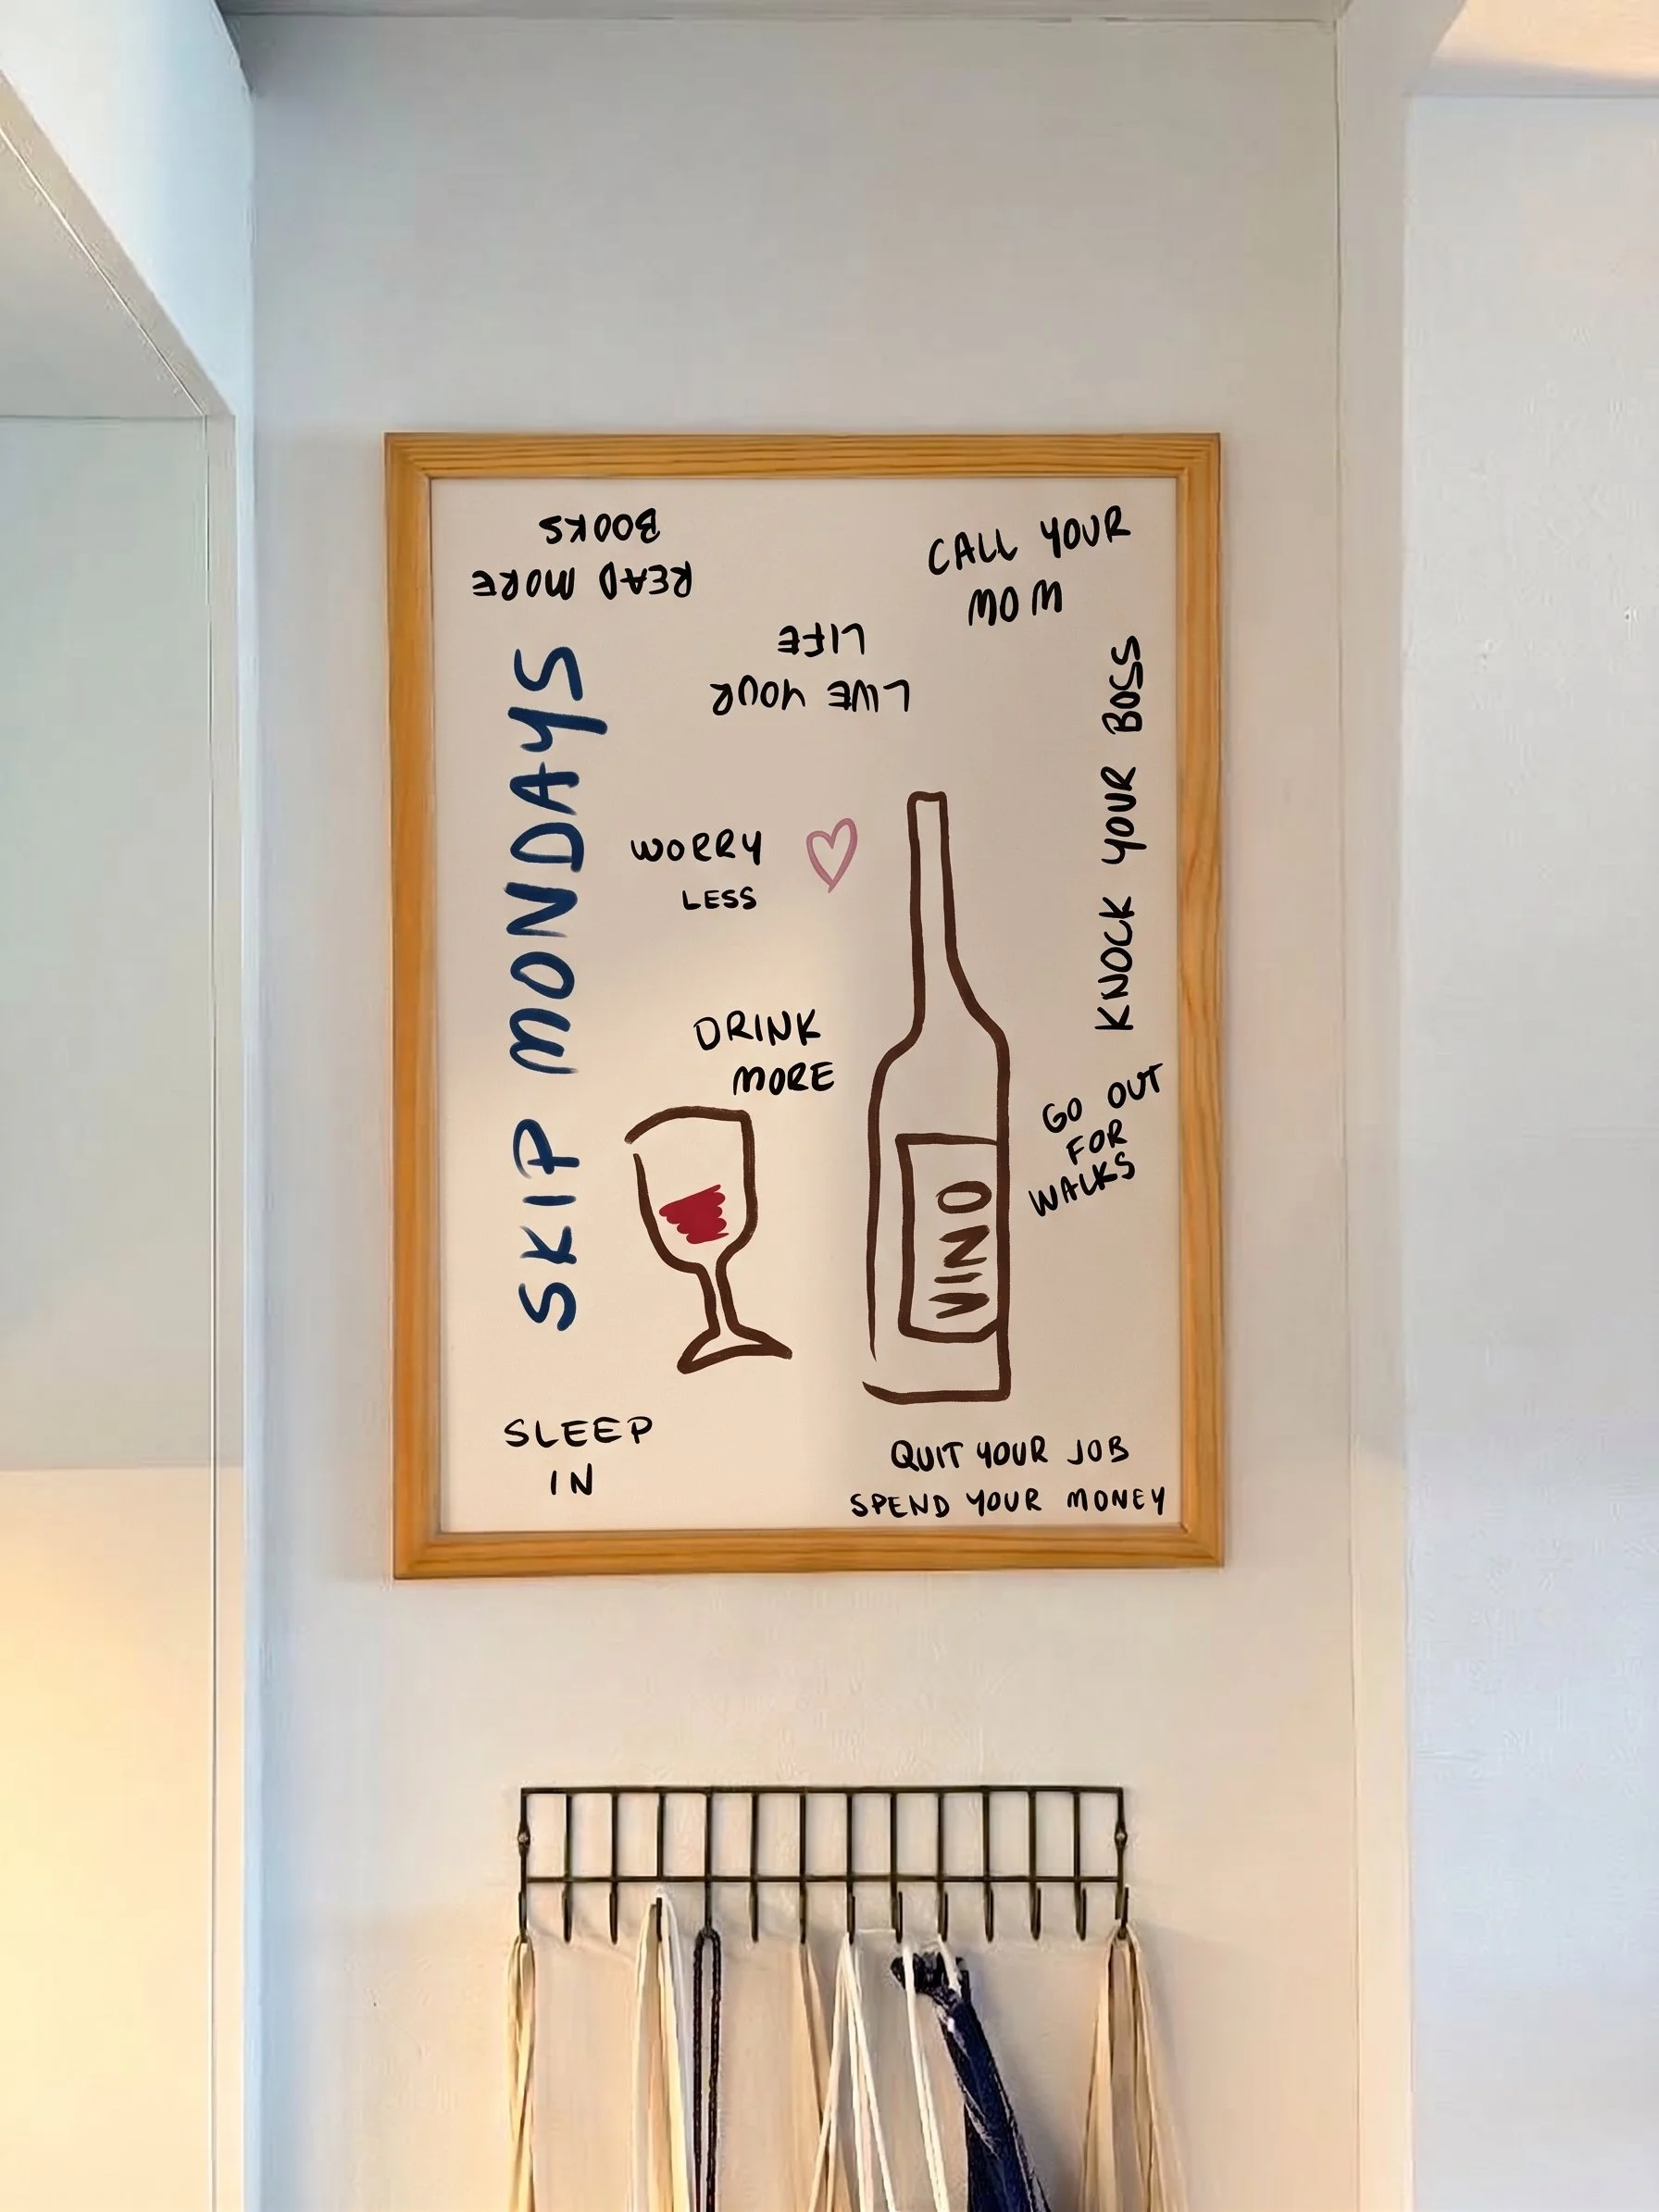 READ MORE
BOOKS
CALL YOUR
MOM
LIVE YOUR
LIFE
SKIP MONDAYS
KNOCK YOUR BOSS
WORRY
LESS
DRINK
MORE
GO OUT
FOR
WALKS
VINO
SLEEP
IN
QUIT YOUR JOB
SPEND YOUR MONEY